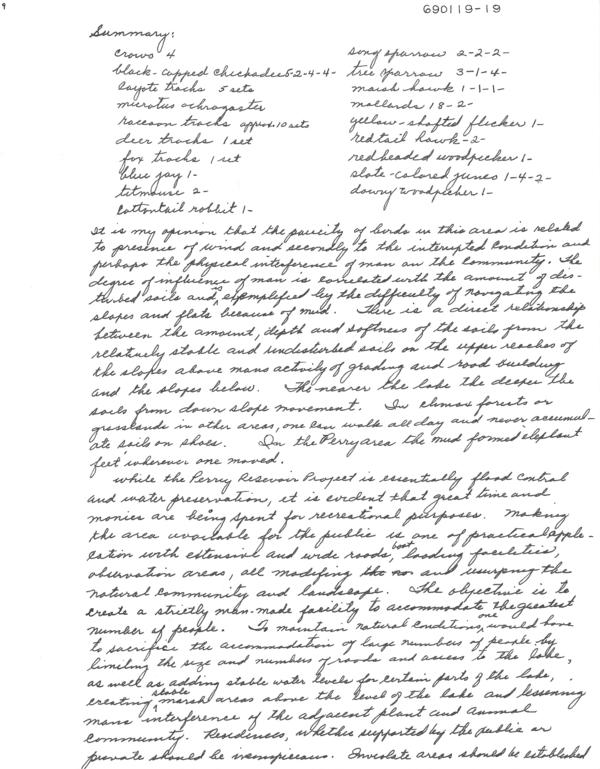 9
690119-19
Summary:
crows 4
black-capped chickadees 5-2-4-4-
coyote tracks 5 sets
microtus ochrogaster
raccoon tracks approx. 10 sets
deer tracks 1 set
fox tracks 1 set
blue jay 1-
titmouse 2-
cottontail rabbit 1-
song sparrow 2-2-2-
tree sparrow 3-1-4-
marsh hawk 1-1-1-
mallards 18-2-
yellow-shafted flicker 1-
redtail hawk-2-
redheaded woodpecker 1-
slate-colored junco 1-4-2-
downy woodpecker 1-
It is my opinion that the paucity of birds in this area is related
to presence of wind and secondly to the interupted condition and
perhaps the physical interference of man on the community. The
degree of influence of man is correlated with the amount of dis-
turbed soils and is exemplified by the difficulty of navigating the
slopes and flats because of mud. There is a direct relationship
between the amount, depth and softness of the soils from the
relatively stable and undisturbed soils on the upper reaches of
the slopes above mans activity of grading and road building
and the slopes below. The nearer the lake the deeper the
soils from down slope movement. In climax forests or
grasslands in other areas, one can walk all day and never accumul-
ate soils on shoes. In the Perry area the mud formed "elephant
feet" wherever one moved.
While the Perry Reservoir Project is essentially flood control
and water preservation, it is evident that great time and
monies are being spent for recreational purposes. Making
the area available for the public is one of practical apple-
cation with extensive and wide roads, boat loading facilities,
observation areas, all modifing the and usurping the
natural community and landscape. The objective is to
create a strictly man-made facility to accommodate the greatest
number of people. To maintain natural conditions, one would have
to sacrifice the accommodation of large numbers of people by
limiting the size and numbers of roads and access to the lake,
as well as adding stable water levels for certain parts of the lake,
creating stable marsh areas above the level of the lake and lessening
mans interference of the adjacent plant and animal
community. Residences, whether supported by the public or
private should be inconspicuous. Inviolate areas should be established